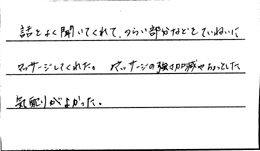 話をよく聞いてくれて、つらい部分などをていねいに
マッサージしてくれた。 マッサージの強さ加減やちょっとした
気配りがよかった。